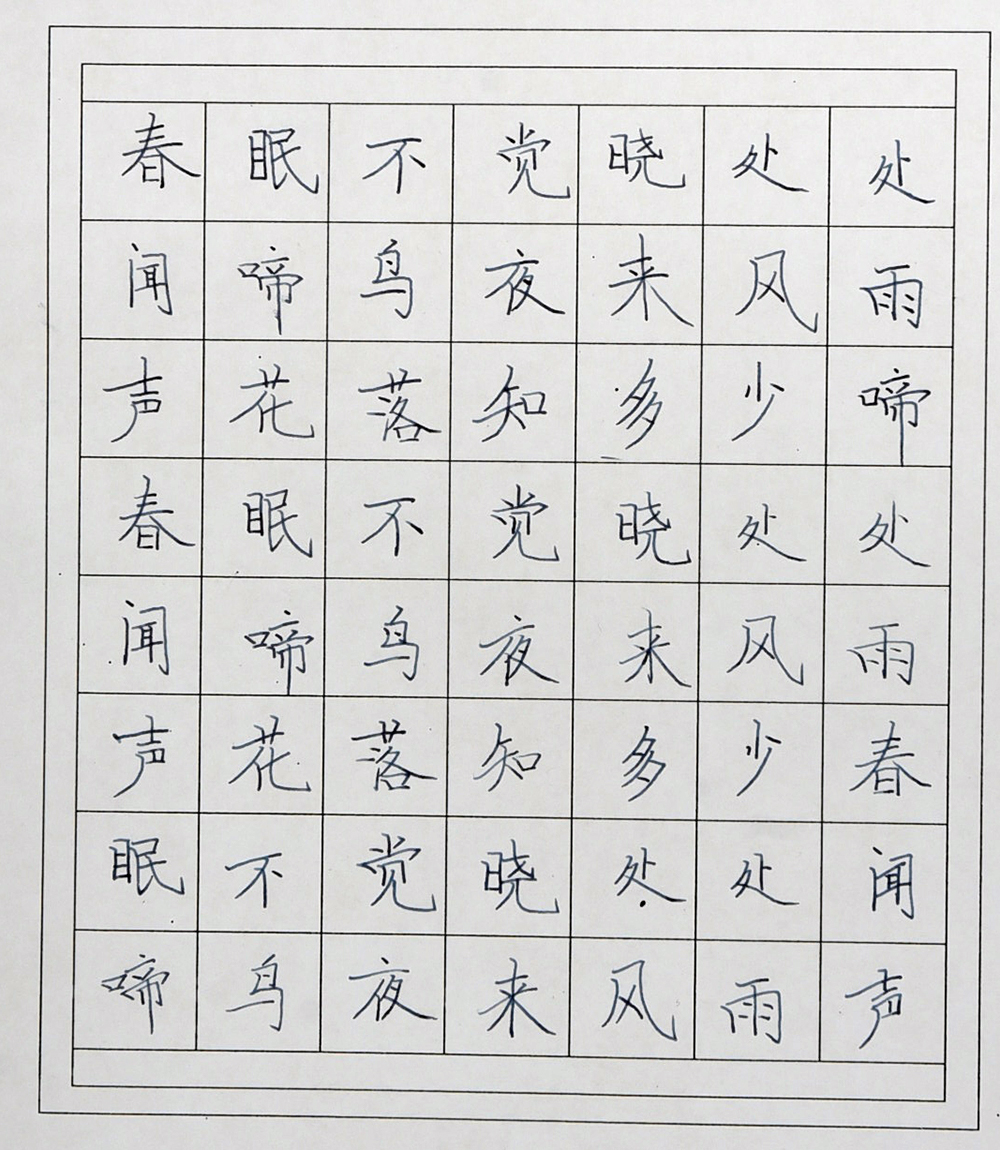 春眠不觉晓处处
闻啼鸟夜来风雨
声花落知多少啼
春眠不觉晓处处
闻啼鸟夜来风雨
声花落知多少春
眠不觉晓处处闻
啼鸟夜来风雨声